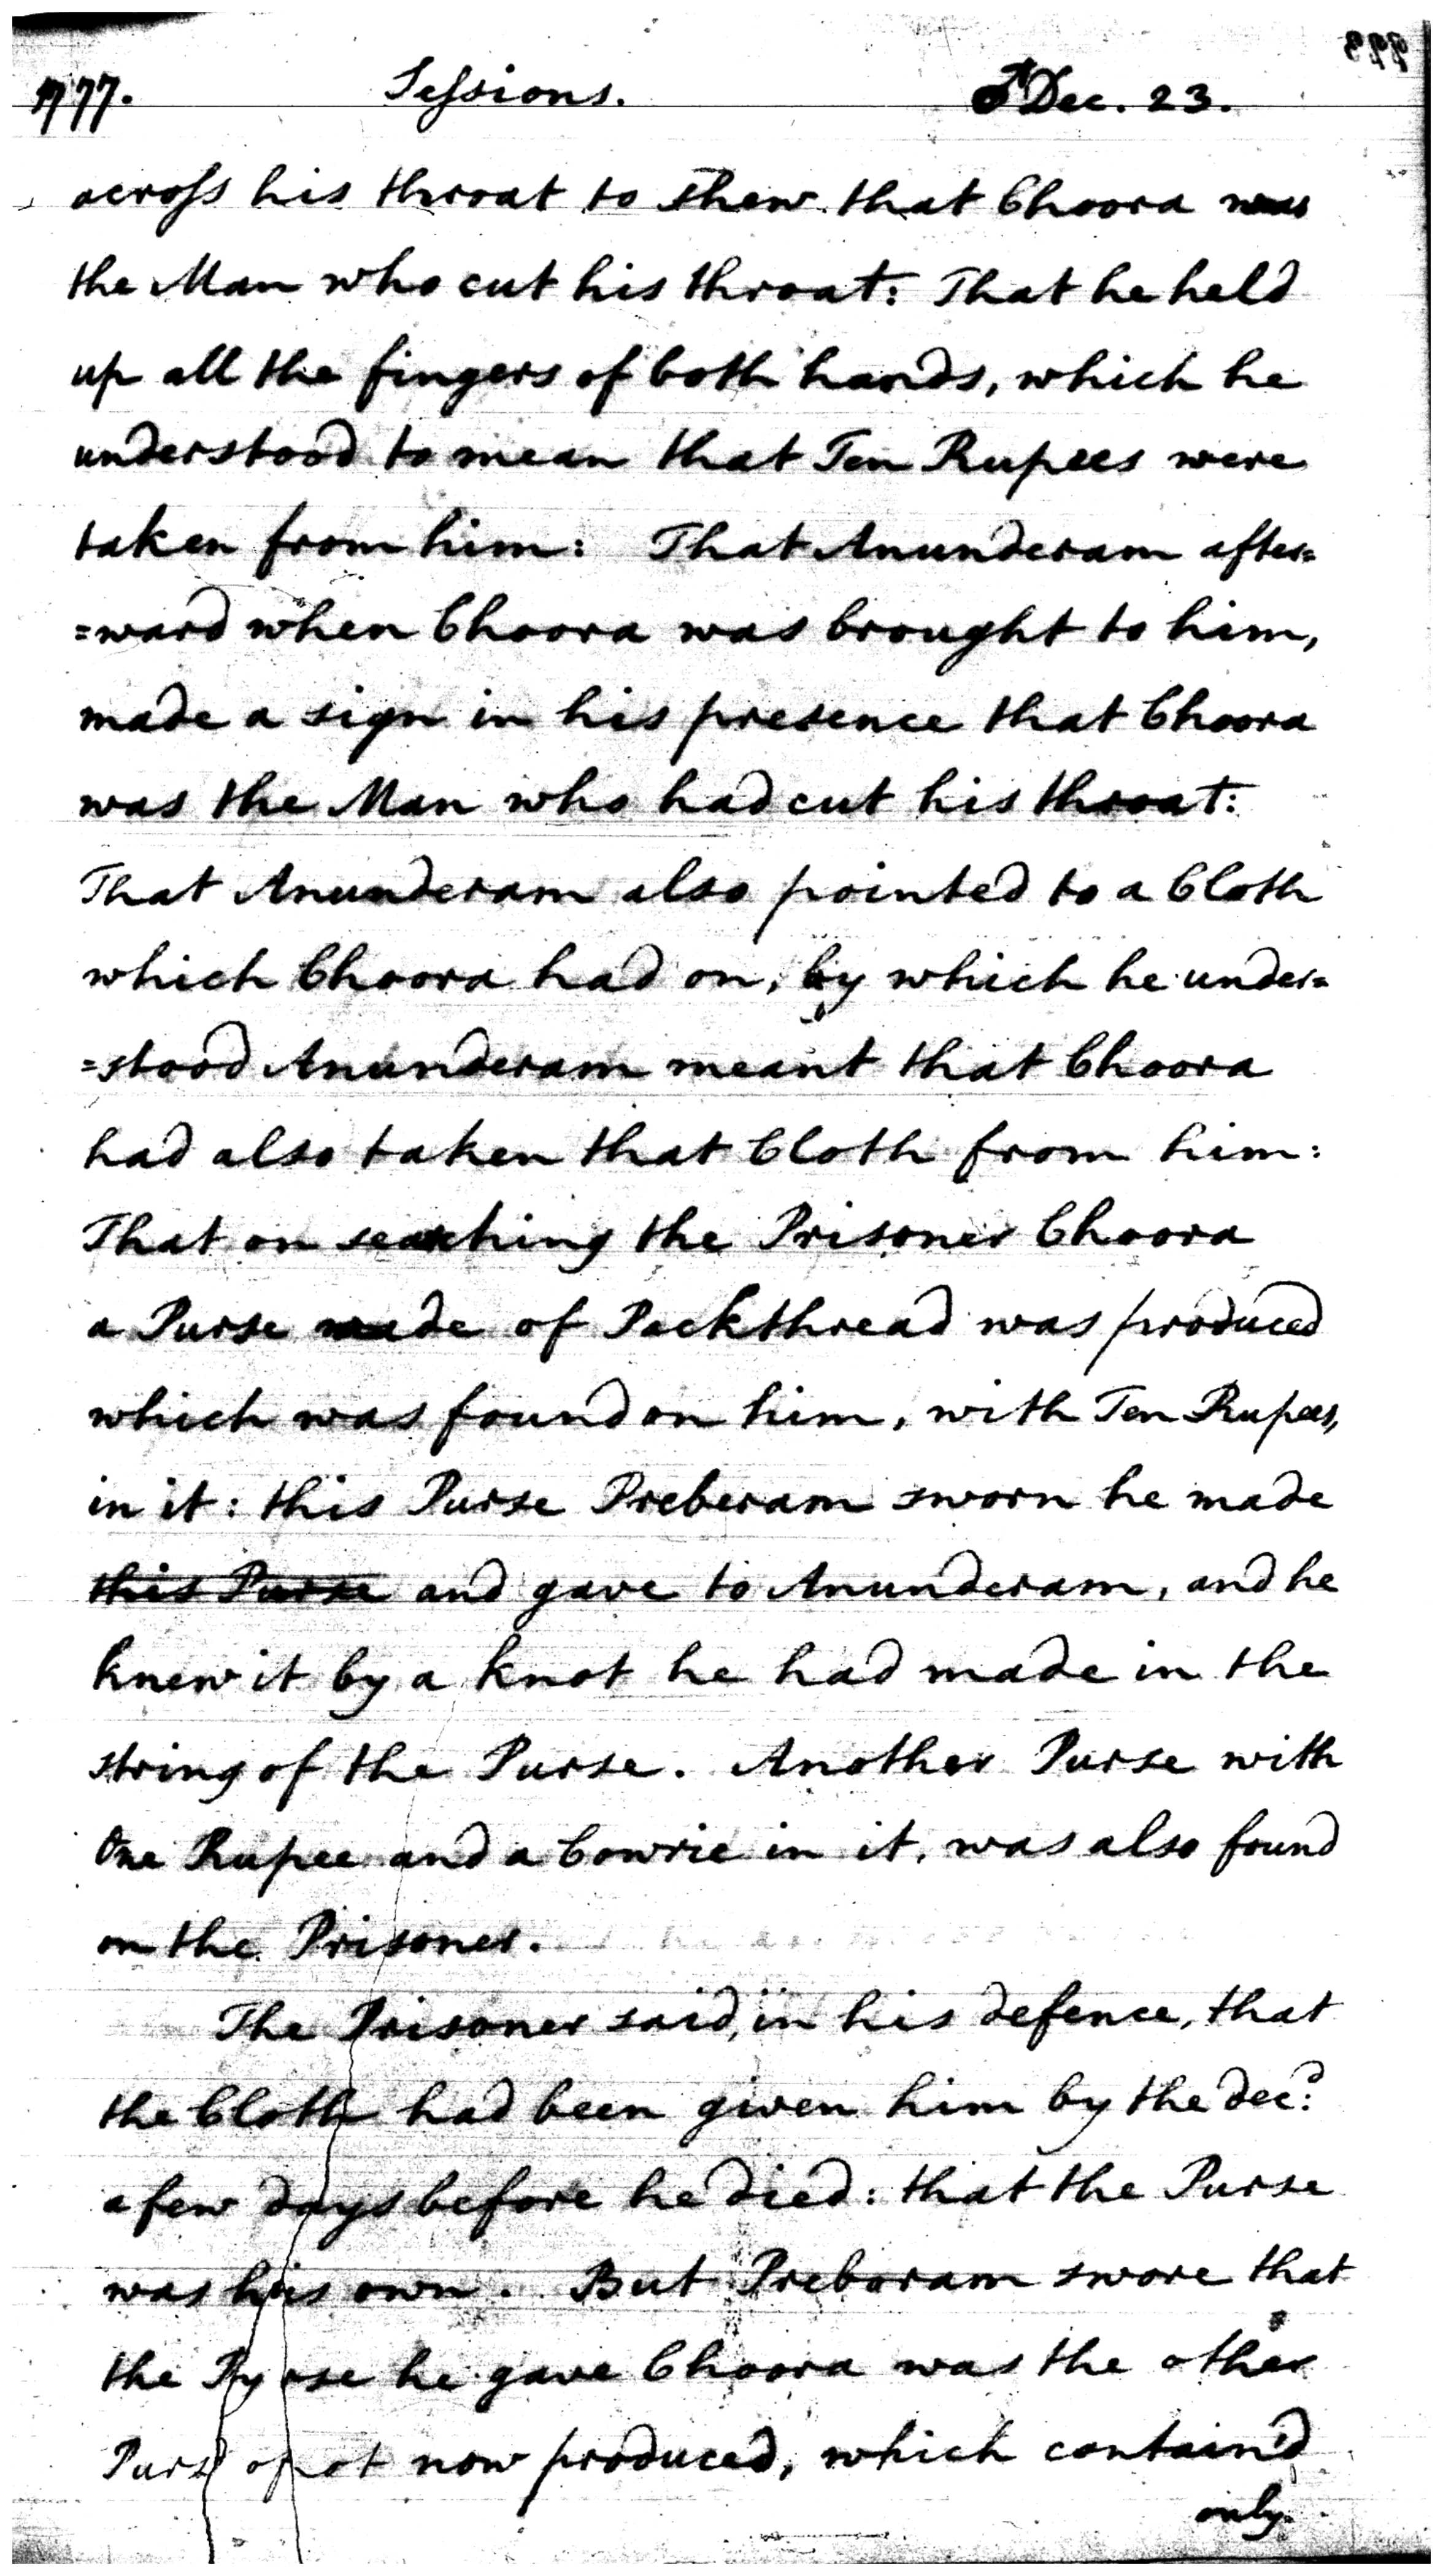 1777. Sessions. ♂ Dec. 23.
across his throat to shew that Choora was
the Man who cut his throat: That he held
up all the fingers of both hands, which he
understood to mean that Ten Rupees were
taken from him: That Anunderam after=
=ward when Choora was brought to him,
made a sign in his presence that Choora
was the Man who had cut his throat:
That Anunderam also pointed to a Cloth
which Choora had on, by which he under=
=stood Anunderam meant that Choora
had also taken that Cloth from him:
That on searching the Prisoner Choora
a Purse made of Packthread was produced
which was found on him, with Ten Rupees,
in it: this Purse Preberam sworn he made
this Purse and gave to Anunderam, and he
knew it by a knot he had made in the
string of the Purse. Another Purse with
One Rupee and a Cowrie in it, was also found
on the Prisoner.
The Prisoner said, in his defence, that
the Cloth had been given him by the decd.
a few days before he died: that the Purse
was his own. But Preboram swore that
the Purse he gave Choora was the other
Purse not now produced, which contain'd
only